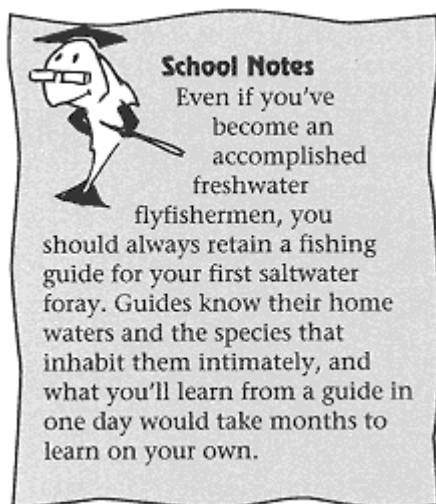 School Notes
Even if you've
become an
accomplished
freshwater
flyfishermen, you
should always retain a fishing
guide for your first saltwater
foray. Guides know their home
waters and the species that
inhabit them intimately, and
what you'll learn from a guide in
one day would take months to
learn on your own.